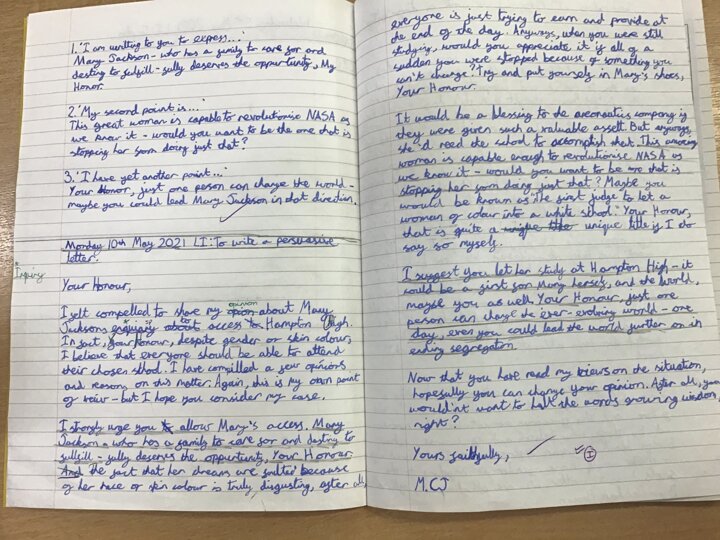 1. 'I am writing to you to express...'
Mary Jackson - who has a family to care for and
destiny to fulfill - fully deserves the oppurtunity, My
Honor.
2. 'My second point is...'
This great woman is capable to revolutionise NASA as
we know it - would you want to be the one that is
stopping her from doing just that?
3. 'I have yet another point...'
Your Honor, just one person can change the world -
maybe you could lead Mary Jackson in that direction.
Monday 10th May 2021 LI: To write a persuasive
letter.
Inquiry
Your Honour,
opinion
I felt compelled to share my opion about Mary
Jacksons enquiry about access to Hampton High.
In fact, your Honour, despite gender or skin colour,
I believe that everyone should be able to attend
their chosen school. I have compilled a few opinions
and reasons on this matter. Again, this is my own point
of veiw - but I hope you consider my case.
I strongly urge you to allow Mary's access. Mary
Jackson - who has a family to care for and destiny to
fulfill - fully deserves the oppurtunity, Your Honour.
And the fact that her dreams are halted because
of her race or skin colour is truly disgusting, after all,
everyone is just trying to earn and provide at
the end of the day. Anyways, when you were still
studying, would you appreciate it if all of a
sudden you were stopped because of something you
can't change? Try and put yourself in Mary's shoes,
Your Honour.
It would be a blessing to the company if
they were given such a valuable assett. But anyways,
she'd need the school to accomplish that. This amazing
woman is capable enough to revolutionise NASA as
we know it - would you want to be the one that is
stopping her from doing just that? Maybe you
would be known as the first judge to let a
woman of colour into a white school. Your Honour,
that is quite a unique title unique title if I do
say so myself.
I suggest you let her study at Hampton High - it
could be a first for Mary herself, and the World,
maybe you as well. Your Honour, just one
person can change the ever-evolving world - one
day, even you could lead the world further on in
ending segregation.
Now that you have read my veiws on the situation,
hopefully you can change your opinion. After all, you
wouldn't want to halt the words growing wisdom,
right?
Yours faithfully,
I
M.CJ